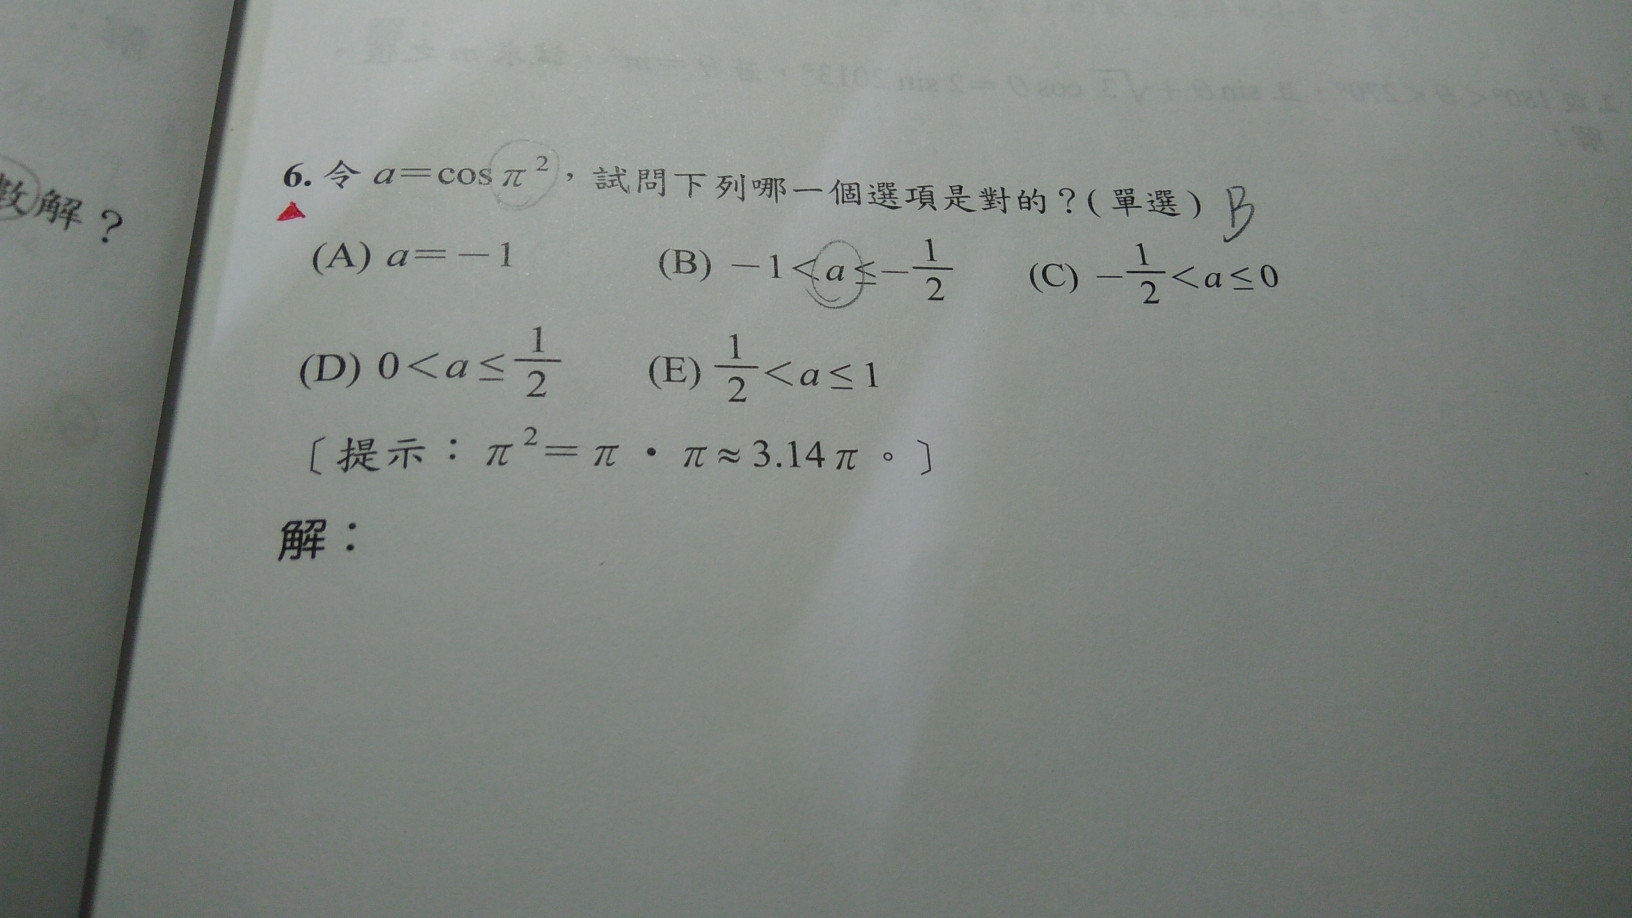 數解？
6. 令 a=cos π²，試問下列哪一個選項是對的？(單選) B
(A) a=－1 (B) －1<a≤－1/2 (C) －1/2<a≤0
(D) 0<a≤1/2 (E) 1/2<a≤1
〔提示：π²=π・π≈3.14π。〕
解：